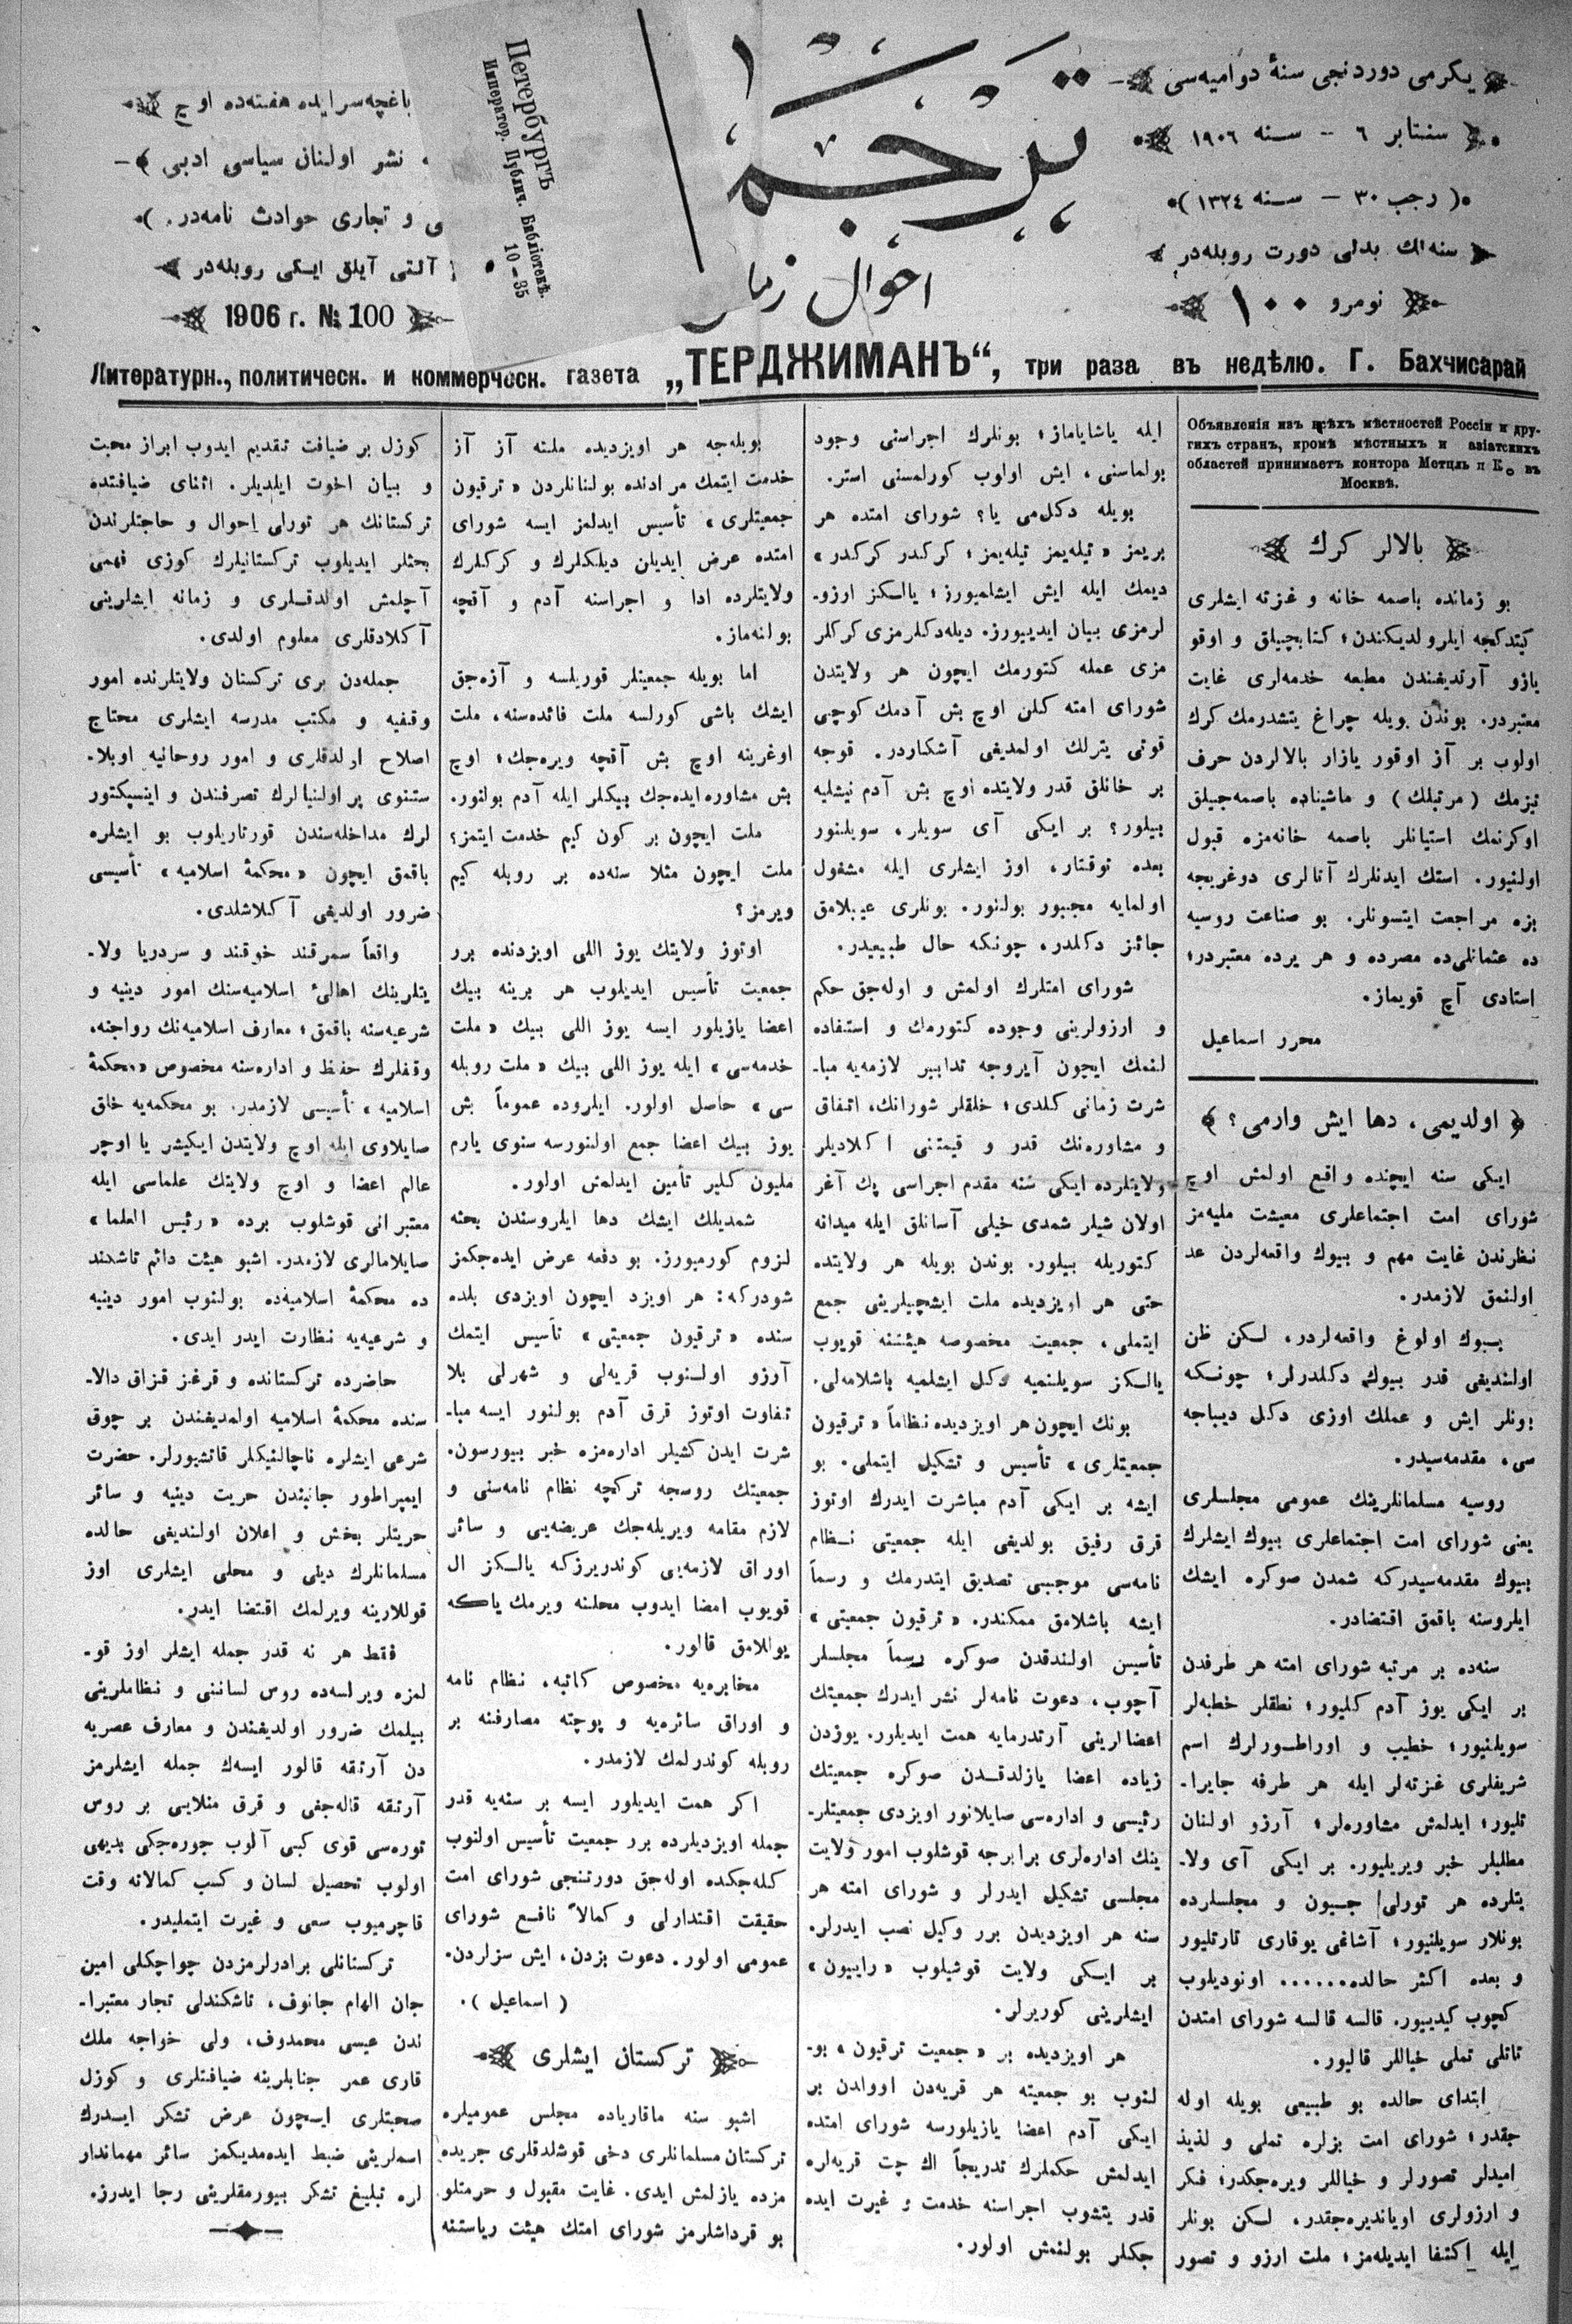 يكرمی دوردنجی سنهٔ دواميه‌سی
سنتابر ٦ – سـنه ١٩٠٦
( رجب ٣٠ – سـنه ١٣٢٤ )
سنه‌لك بدلی دورت روبله‌در
نومرو ١٠٠
ترجمـ
احوال زما
باغچه‌سرايده هفته‌ده اوچ
نشر اولنان سياسی ادبی
ی و تجاری حوادث نامه‌در.
آلتی آيلق ايكی روبله‌در
1906 г. № 100
Петербургъ
Император. Публич. Библіотекѣ.
10–35
Литературн., политическ. и коммерческ. газета „ТЕРДЖИМАНЪ“, три раза въ недѣлю. Г. Бахчисарай
Объявленія изъ всѣхъ мѣстностей Россіи и дру-
гихъ странъ, кромѣ мѣстныхъ и азіатскихъ
областей принимаетъ контора Метцль и Ко въ
Москвѣ.
بالالر كرك
بو زمانده باصمه خانه و غزته ايشلری
كيتدكجه ايلرولديكندن؛ كتابچيلق و اوقو
يازو آرتديغندن مطبعه خدمه‌لری غايت
معتبردر. بوندن بويله چراغ يتشدرمك كرك
اولوب بر آز اوقور يازار بالالردن حرف
تيزمك (مرتبلك) و ماشيناده باصمه‌جيلق
اوكرنمك استيانلر باصمه خانه‌مزه قبول
اولنيور. استك ايدنلرك آنالری دوغريجه
بزه مراجعت ايتسونلر. بو صناعت روسيه
ده عثمانلی‌ده مصرده و هر يرده معتبردر؛
استادی آچ قويماز.
محرر اسماعيل
﴿ اولديمی، دها ايش وارمی؟ ﴾
ايكی سنه ايچنده واقع اولمش اوچ
شورای امت اجتماعلری معيشت مليه‌مز
نظرندن غايت مهم و بيوك واقعه‌لردن عد
اولنمق لازمدر.
بيوك اولوغ واقعه‌لردر، لسكن ظن
اولنديغی قدر بيوك دكلدرلر؛ چونكه
بونلر ايش و عملك اوزی دكل ديباجه
سی، مقدمه‌سيدر.
روسيه مسلمانلرينك عمومی مجلسلری
يعنی شورای امت اجتماعلری بيوك ايشلرك
بيوك مقدمه‌سيدركه شمدن صوكره ايشك
ايلروسنه باقمق اقتضادر.
سنه‌ده بر مرتبه شورای امته هر طرفدن
بر ايكی يوز آدم كليور؛ نطقلر خطبه‌لر
سويلنيور؛ خطيب و اوراطـورلرك اسم
شريفلری غزته‌لر ايله هر طرفه جايرا-
تليور؛ ايدلمش مشاوره‌لر؛ آرزو اولنان
مطلبلر خبر ويريليور. بر ايكی آی ولا-
يتلرده هر تورلی جـيون و مجلسلرده
بونلار سويلنيور؛ آشاغی يوقاری تارتليور
و بعده اكثر حالده...... اونوديلوب
كچوب كيدييور. قالسه قالسه شورای امتدن
تاتلی تملی خياللر قاليور.
ابتدای حالده بو طبيعی بويله اوله
جقدر؛ شورای امت بزلره تملی و لذيذ
اميدلر تصورلر و خياللر ويره‌جكدر؛ فكر
و ارزولری اوياندیره‌جقدر، لسكن بونلر
ايله اكتفا ايديله‌مز؛ ملت ارزو و تصور
ايله ياشاياماز؛ بونلرك اجراسنی وجود
بولماسنی، ايش اولوب كورلمسنی استر.
بويله دكل‌می يا؟ شورای امتده هر
بريمز «تيله‌يمز تيله‌يمز؛ كركدر كركدر»
ديمك ايله ايش ايشلميورز؛ يالـكز ارزو-
لرمزی بيان ايدييورز. ديله‌دكلرمزی كركلر
مزی عمله كتورمك ايچون هر ولايتدن
شورای امته كلن اوچ بش آدمك كوچی
قوتی يترلك اولمديغی آشكاردر. قوجه
بر خانلق قدر ولايتده اوچ بش آدم نيشليه
بيلور؟ بر ايكی آی سويلر، سويلنور
بعده توقتار، اوز ايشلری ايله مشغول
اولمايه مجبور بولنور. بونلری عيبلامق
جائز دكلدر، چونكه حال طبيعيدر.
شورای امتلرك اولمش و اوله‌جق حكم
و ارزولرينی وجوده كتورمك و استفاده
لنمك ايچون آيروجه تدابير لازمه‌يه مبا-
شرت زمانی كلدی؛ خلقلر شورانك، اتفاق
و مشاوره‌نك قدر و قيمتنی اكلاديلر
ولايتلرده ايكی سنه مقدم اجراسی پك آغر
اولان شيلر شمدی خيلی آسانلق ايله ميدانه
كتوريله بيلور. بوندن بويله هر ولايتده
حتی هر اويزديده ملت ايشچيلرينی جمع
ايتملی، جمعيت مخصوصه هيئتنه قويوب
يالـكز سويلنميه دكل ايشلميه باشلامه‌لی.
بونك ايچون هر اويزديده نظاماً «ترقيون
جمعيتلری» تأسيس و تشكيل ايتملی. بو
ايشه بر ايكی آدم مباشرت ايدرك اوتوز
قرق رفيق بولديغی ايله جمعيتی نـظام
نامه‌سی موجبی تصديق ايتدرمك و رسماً
ايشه باشلامق ممكندر. «ترقيون جمعيتی»
تأسيس اولندقدن صوكره رسماً مجلسلر
آچوب، دعوت نامه‌لر نشر ايدرك جمعيتك
اعضالرينی آرتدرمايه همت ايديلور. يوزدن
زياده اعضا يازلدقـدن صوكره جمعيتك
رئيسی و اداره‌سی صايلانور اويزدی جمعيتلر-
ينك اداره‌لری برابرجه قوشلوب امور ولايت
مجلسی تشكيل ايدرلر و شورای امته هر
سنه هر اويزديدن برر وكيل نصب ايدرلر.
بر ايـكی ولايت قوشيلوب «رايييون»
ايشلرينی كوريرلر.
هر اويزديده بر «جمعيت ترقيون» بو-
لنوب بو جمعيته هر قريه‌دن اوواـدن بر
ايكی آدم اعضا يازيلورسه شورای امتده
ايدلمش حكملرك تدريجاً اك چت قريه‌لره
قدر يتشوب اجراسنه خدمت و غيرت ايده
جكلر بولنمش اولور.
بويله‌جه هر اويزديده ملته آز آز
خدمت ايتمك مرادنده بولنانلردن «ترقيون
جمعيتلری» تأسيس ايدلمز ايسه شورای
امتده عرض ايديلن ديلكلرك و كركلرك
ولايتلرده ادا و اجراسنه آدم و آقچه
بولنه‌ماز.
اما بويله جمعيتلر قوريلسه و آزه‌جق
ايشك باشی كورلسه ملت فائده‌سنه، ملت
اوغرينه اوچ بش آقچه ويره‌جك؛ اوچ
بش مشاوره ايده‌جك بيكلر ايله آدم بولنور.
ملت ايچون بر كون كيم خدمت ايتمز؟
ملت ايچون مثلا سنه‌ده بر روبله كيم
ويرمز؟
اوتوز ولايتك يوز اللی اويزدنده برر
جمعيت تأسيس ايديلوب هر برينه بيك
اعضا يازيلور ايسه يوز اللی بيك «ملت
خدمه‌سی» ايله يوز اللی بيك «ملت روبله
سی» حاصل اولور. ايلروده عموماً بش
يوز بيك اعضا جمع اولنورسه سنوی يارم
مليون كلير تأمين ايدلمش اولور.
شمديلك ايشك دها ايلروسندن بحثه
لزوم كورميورز. بو دفعه عرض ايده‌جكمز
شودركه: هر اويزد ايچون اويزدی بلده
سنده «ترقيون جمعيتی» تأسيس ايتمك
آرزو اولـنوب قريه‌لی و شهرلی بلا
تفاوت اوتوز قرق آدم بولنور ايسه مبا-
شرت ايدن كشيلر اداره‌مزه خبر بييورسون.
جمعيتك روسجه تركچه نظام نامه‌سنی و
لازم مقامه ويريله‌جك عريضه‌یی و سائر
اوراق لازمه‌یی كوندريرزكه يالـكز ال
قويوب امضا ايدوب محلنه ويرمك ياكه
يوللامق قالور.
مخابره‌يه مخصوص كاتبه، نظام نامه
و اوراق سائره‌يه و پوچته مصارفنه بر
روبله كوندرلمك لازمدر.
اكر همت ايديلور ايسه بر سنه‌يه قدر
جمله اويزديلرده برر جمعيت تأسيس اولنوب
كله‌جكده اوله‌جق دورتنجی شورای امت
حقيقت اقتدارلی و كمالاً نافع شورای
عمومی اولور. دعوت بزدن، ايش سزلردن.
( اسماعيل ).
تركستان ايشلری
اشبو سنه ماقارياده مجلس عموميلره
تركستان مسلمانلری دخی قوشلدقلری جريده
مزده يازلمش ايدی. غايت مقبول و حرمتلو
بو قرداشلرمز شورای امتك هيئت رياستنه
كوزل بر ضيافت تـقديم ايدوب ابراز محبت
و بيان اخوت ايلديلر. اثنای ضيافتده
تركستانك هر تورلی احوال و حاجتلرندن
بحثلر ايديلوب تركستانيلرك كوزی فهمی
آچلمش اولدقـلری و زمانه ايشلرينی
آكلادقلری معلوم اولدی.
جمله‌دن بری تركستان ولايتلرنده امور
وقفيه و مكتب مدرسه ايشلری محتاج
اصلاح اولدقلری و امور روحانيه اوبلا-
ستنوی پراولنيالرك تصرفندن و اينسپكتور
لرك مداخله‌سندن قورتاريلوب بو ايشلره
باقمق ايچون «محكمهٔ اسلاميه» تأسيسی
ضرور اولديغی آكلاشلدی.
واقعاً سمرقند خوقند و سردريا ولا-
يتلرينك اهالیٔ اسلاميه‌سنك امور دينيه و
شرعيه‌سنه باقمق؛ معارف اسلاميه‌نك رواجنه،
وقفلرك حفظ و اداره‌سنه مخصوص «محكمهٔ
اسلاميه» تأسيسی لازمدر. بو محكمه‌يه خلق
صايلاوی ايله اوچ ولايتدن ايكيشر يا اوچر
عالم اعضا و اوچ ولايتك علماسی ايله
معتبرانی قوشلوب برده «رئيس العلما»
صايلامالری لازمدر. اشبو هيئت دائم تاشكند
ده محكمهٔ اسلاميه‌ده بولنوب امور دينيه
و شرعيه‌يه نظارت ايدر ايدی.
حاضرده تركستانده و قرغز قـزاق دالا-
سنده محكمهٔ اسلاميه اولمديغندن بر چوق
شرعی ايشلره ناچالنيكلر قاتشيورلر. حضرت
ايمپراطور جانبندن حريت دينيه و سائر
حريتلر بخش و اعلان اولنديغی حالده
مسلمانلرك دينی و محلی ايشلری اوز
قوللارينه ويرلمك اقتضا ايدر.
فقط هر نه قدر جمله ايشلر اوز قو-
لمزه ويرلسه‌ده روس لساننی و نظاملرينی
بيلمك ضرور اولديغندن و معارف عصريه
دن آرتقه قالور ايسه‌ك جمله ايشلرمز
آرتقه قاله‌جغی و قرق منلايی بر روس
توره‌سی قوی كبی آلوب جوره‌جكی بديهی
اولوب تحصيل لسان و كسب كمالاته وقت
قاچرميوب سعی و غيرت ايتمليدر.
تركستانلی برادرلرمزدن چواچكلی امين
جان الهام جانوف، تاشكندلی تجار معتبرا-
ندن عيسی محمدوف، ولی خواجه ملك
قاری عمر جنابلرينه ضيافتلری و كوزل
صحبتلری ايـچون عرض تشكر ايـدرك
اسملرينی ضبط ايده‌مديكمز سائر مهماندار
لره تبليغ تشكر بييورمقلرينی رجا ايدرز.